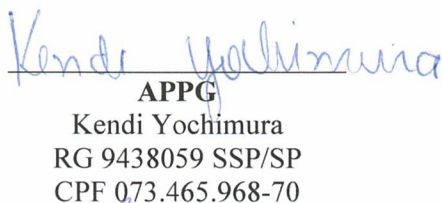 Kendi Yochimura
APPG
Kendi Yochimura
RG 9438059 SSP/SP
CPF 073.465.968-70